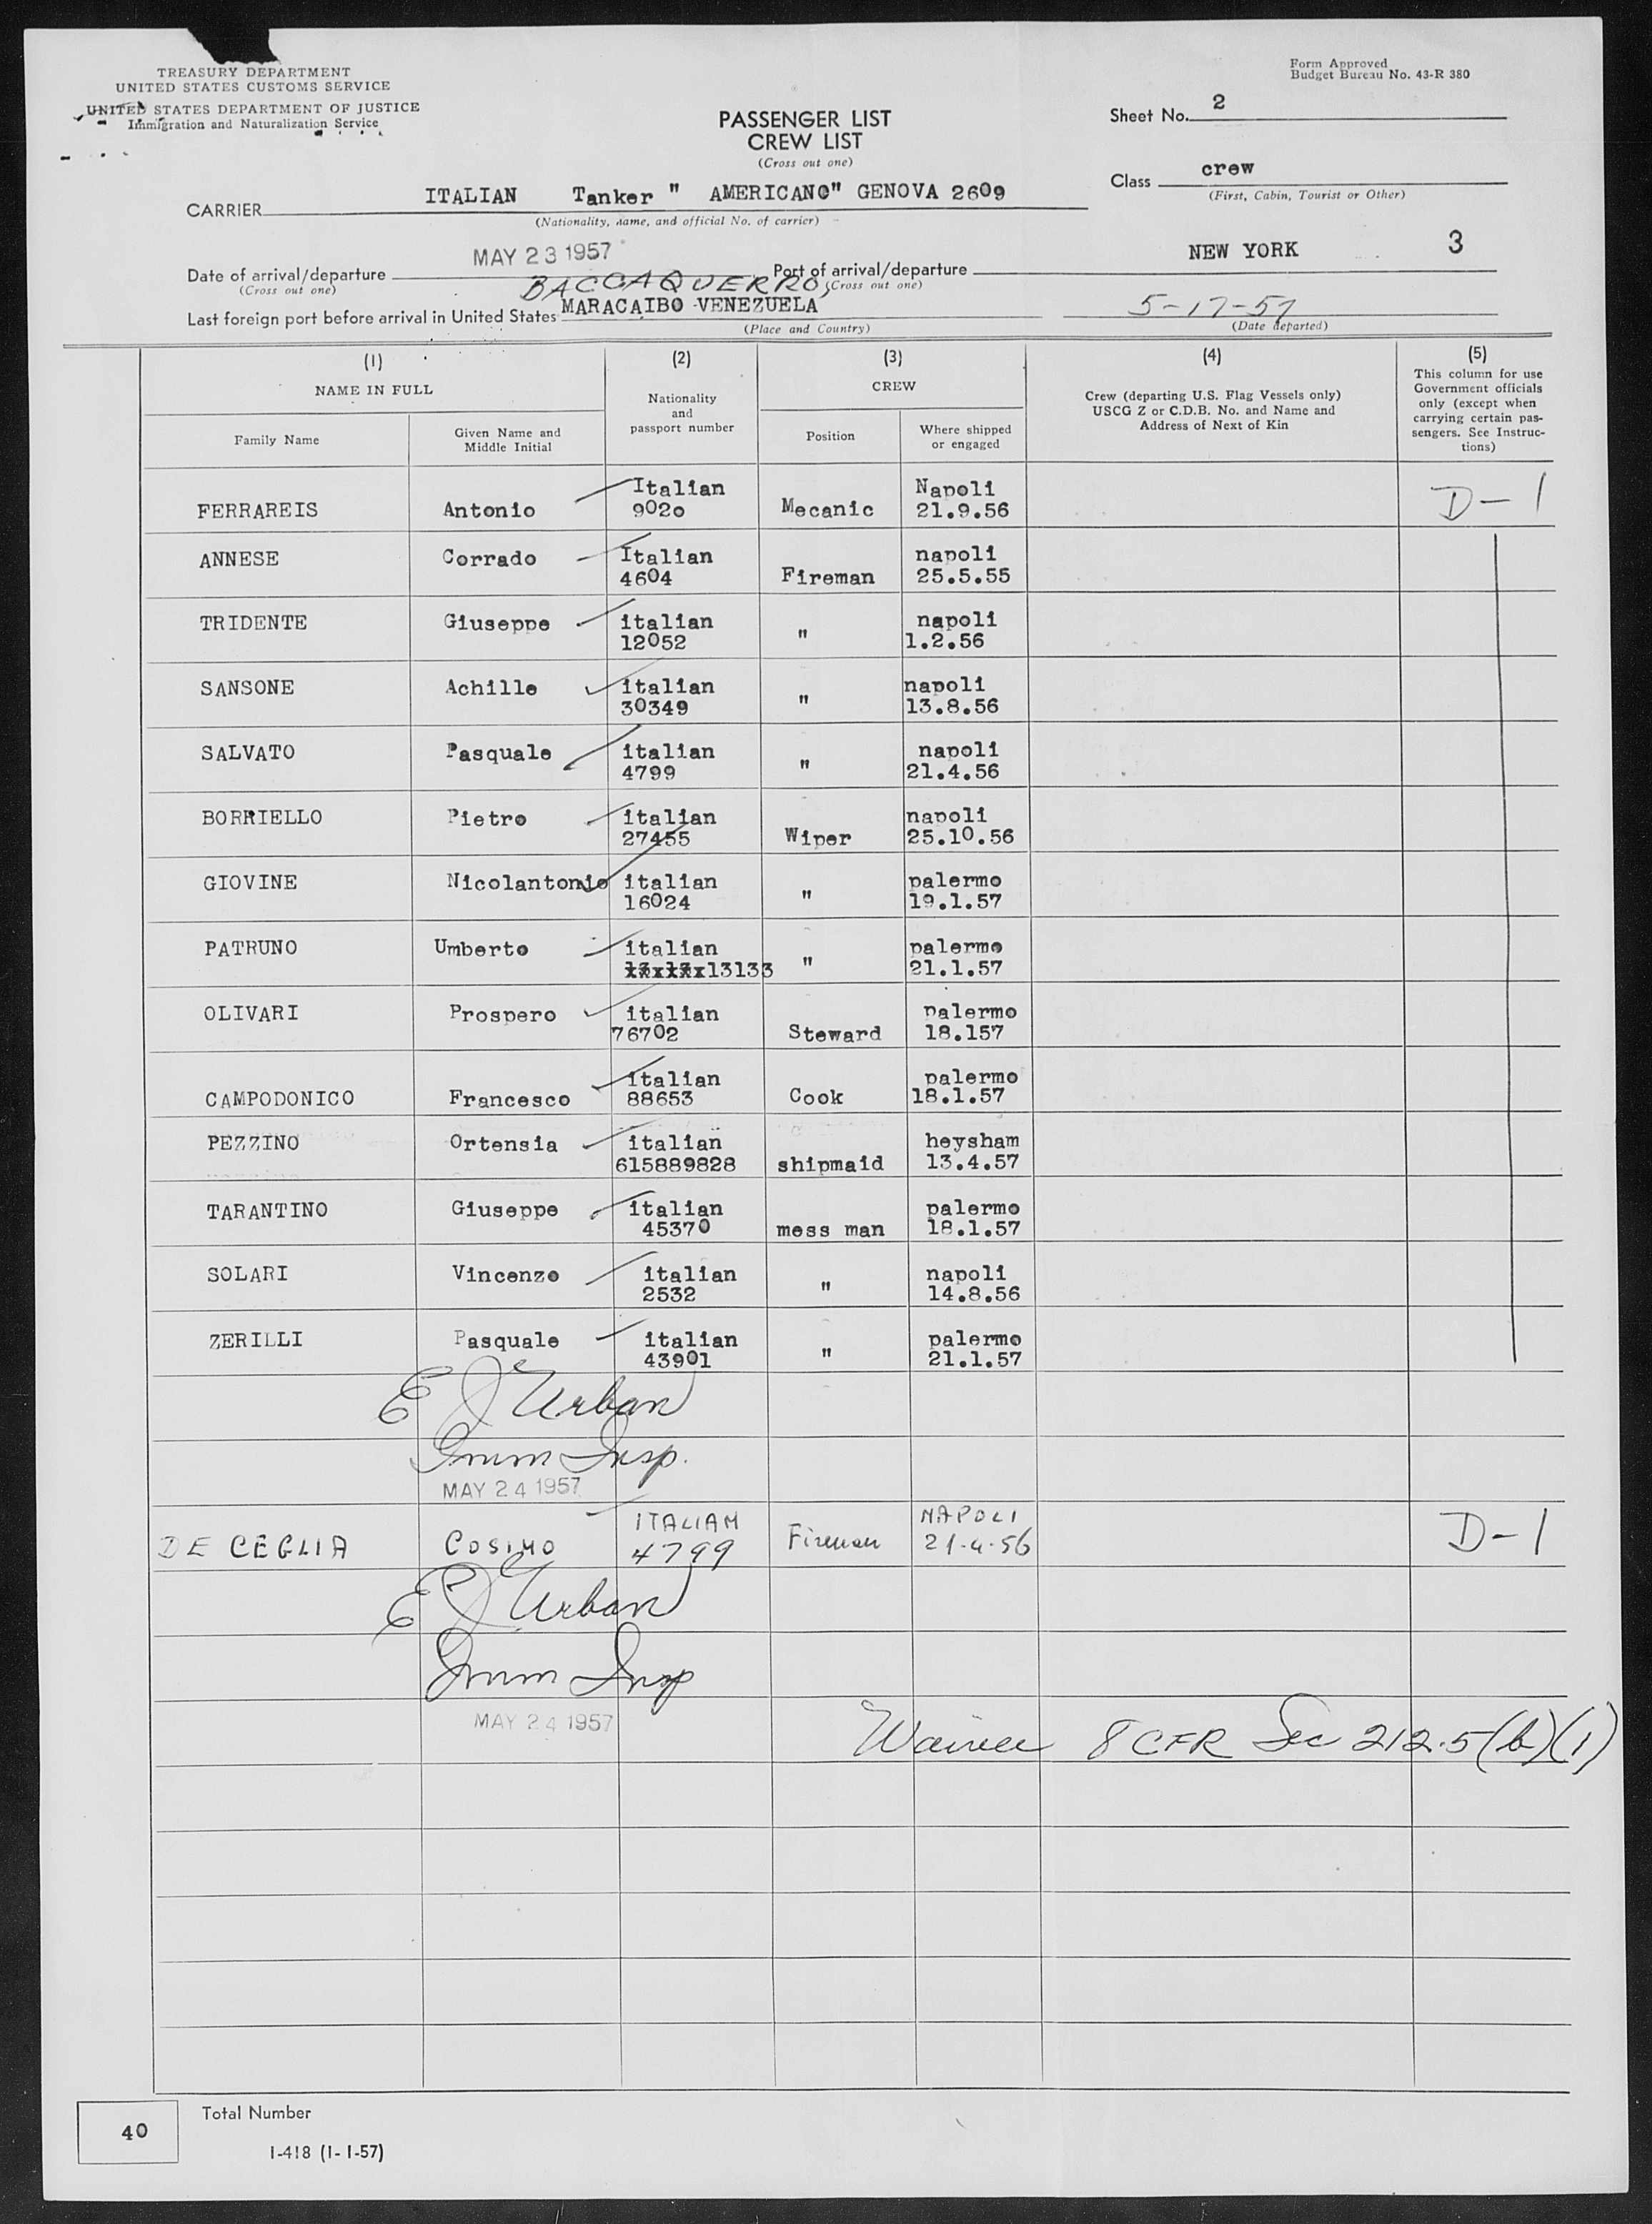 TREASURY DEPARTMENT
UNITED STATES CUSTOMS SERVICE
UNITED STATES DEPARTMENT OF JUSTICE
Immigration and Naturalization Service
Form Approved
Budget Bureau No. 43-R 380
PASSENGER LIST
CREW LIST
(Cross out one)
Sheet No. 2
Class crew
(First, Cabin, Tourist or Other)
CARRIER ITALIAN Tanker " AMERICANO" GENOVA 2609
(Nationality, name, and official No. of carrier)
Date of arrival/departure MAY 23 1957 Port of arrival/departure NEW YORK 3
(Cross out one) (Cross out one)
BACCAQUERRO,
Last foreign port before arrival in United States MARACAIBO -VENEZUELA 5-17-57
(Place and Country) (Date departed)
(1) (2) (3) (4) (5)
NAME IN FULL
Family Name
Given Name and
Middle Initial
Nationality
and
passport number
CREW
Position
Where shipped
or engaged
Crew (departing U.S. Flag Vessels only)
USCG Z or C.D.B. No. and Name and
Address of Next of Kin
This column for use
Government officials
only (except when
carrying certain pas-
sengers. See Instruc-
tions)
Italian Napoli
FERRAREIS Antonio 9020 Mecanic 21.9.56 D-1
ANNESE Corrado Italian napoli
4604 Fireman 25.5.55
TRIDENTE Giuseppe italian napoli
12052 " 1.2.56
SANSONE Achille italian napoli
30349 " 13.8.56
SALVATO Pasquale italian napoli
4799 " 21.4.56
BORRIELLO Pietro italian napoli
27455 Wiper 25.10.56
GIOVINE Nicolantonio italian palermo
16024 " 19.1.57
PATRUNO Umberto italian palermo
13133 " 21.1.57
OLIVARI Prospero italian palermo
76702 Steward 18.157
italian palermo
CAMPODONICO Francesco 88653 Cook 18.1.57
PEZZINO Ortensia italian heysham
615889828 shipmaid 13.4.57
TARANTINO Giuseppe italian palermo
45370 mess man 18.1.57
SOLARI Vincenzo italian napoli
2532 " 14.8.56
ZERILLI Pasquale italian palermo
43901 " 21.1.57
E J Urban
Imm Insp.
MAY 24 1957
ITALIAM NAPOLI
DE CEGLIA COSIMO 4799 Fireman 21-4-56 D-1
E J Urban
Imm Insp
MAY 24 1957
Waiver 8 CFR Sec 212.5(b)(1)
40 Total Number
I-418 (1-1-57)